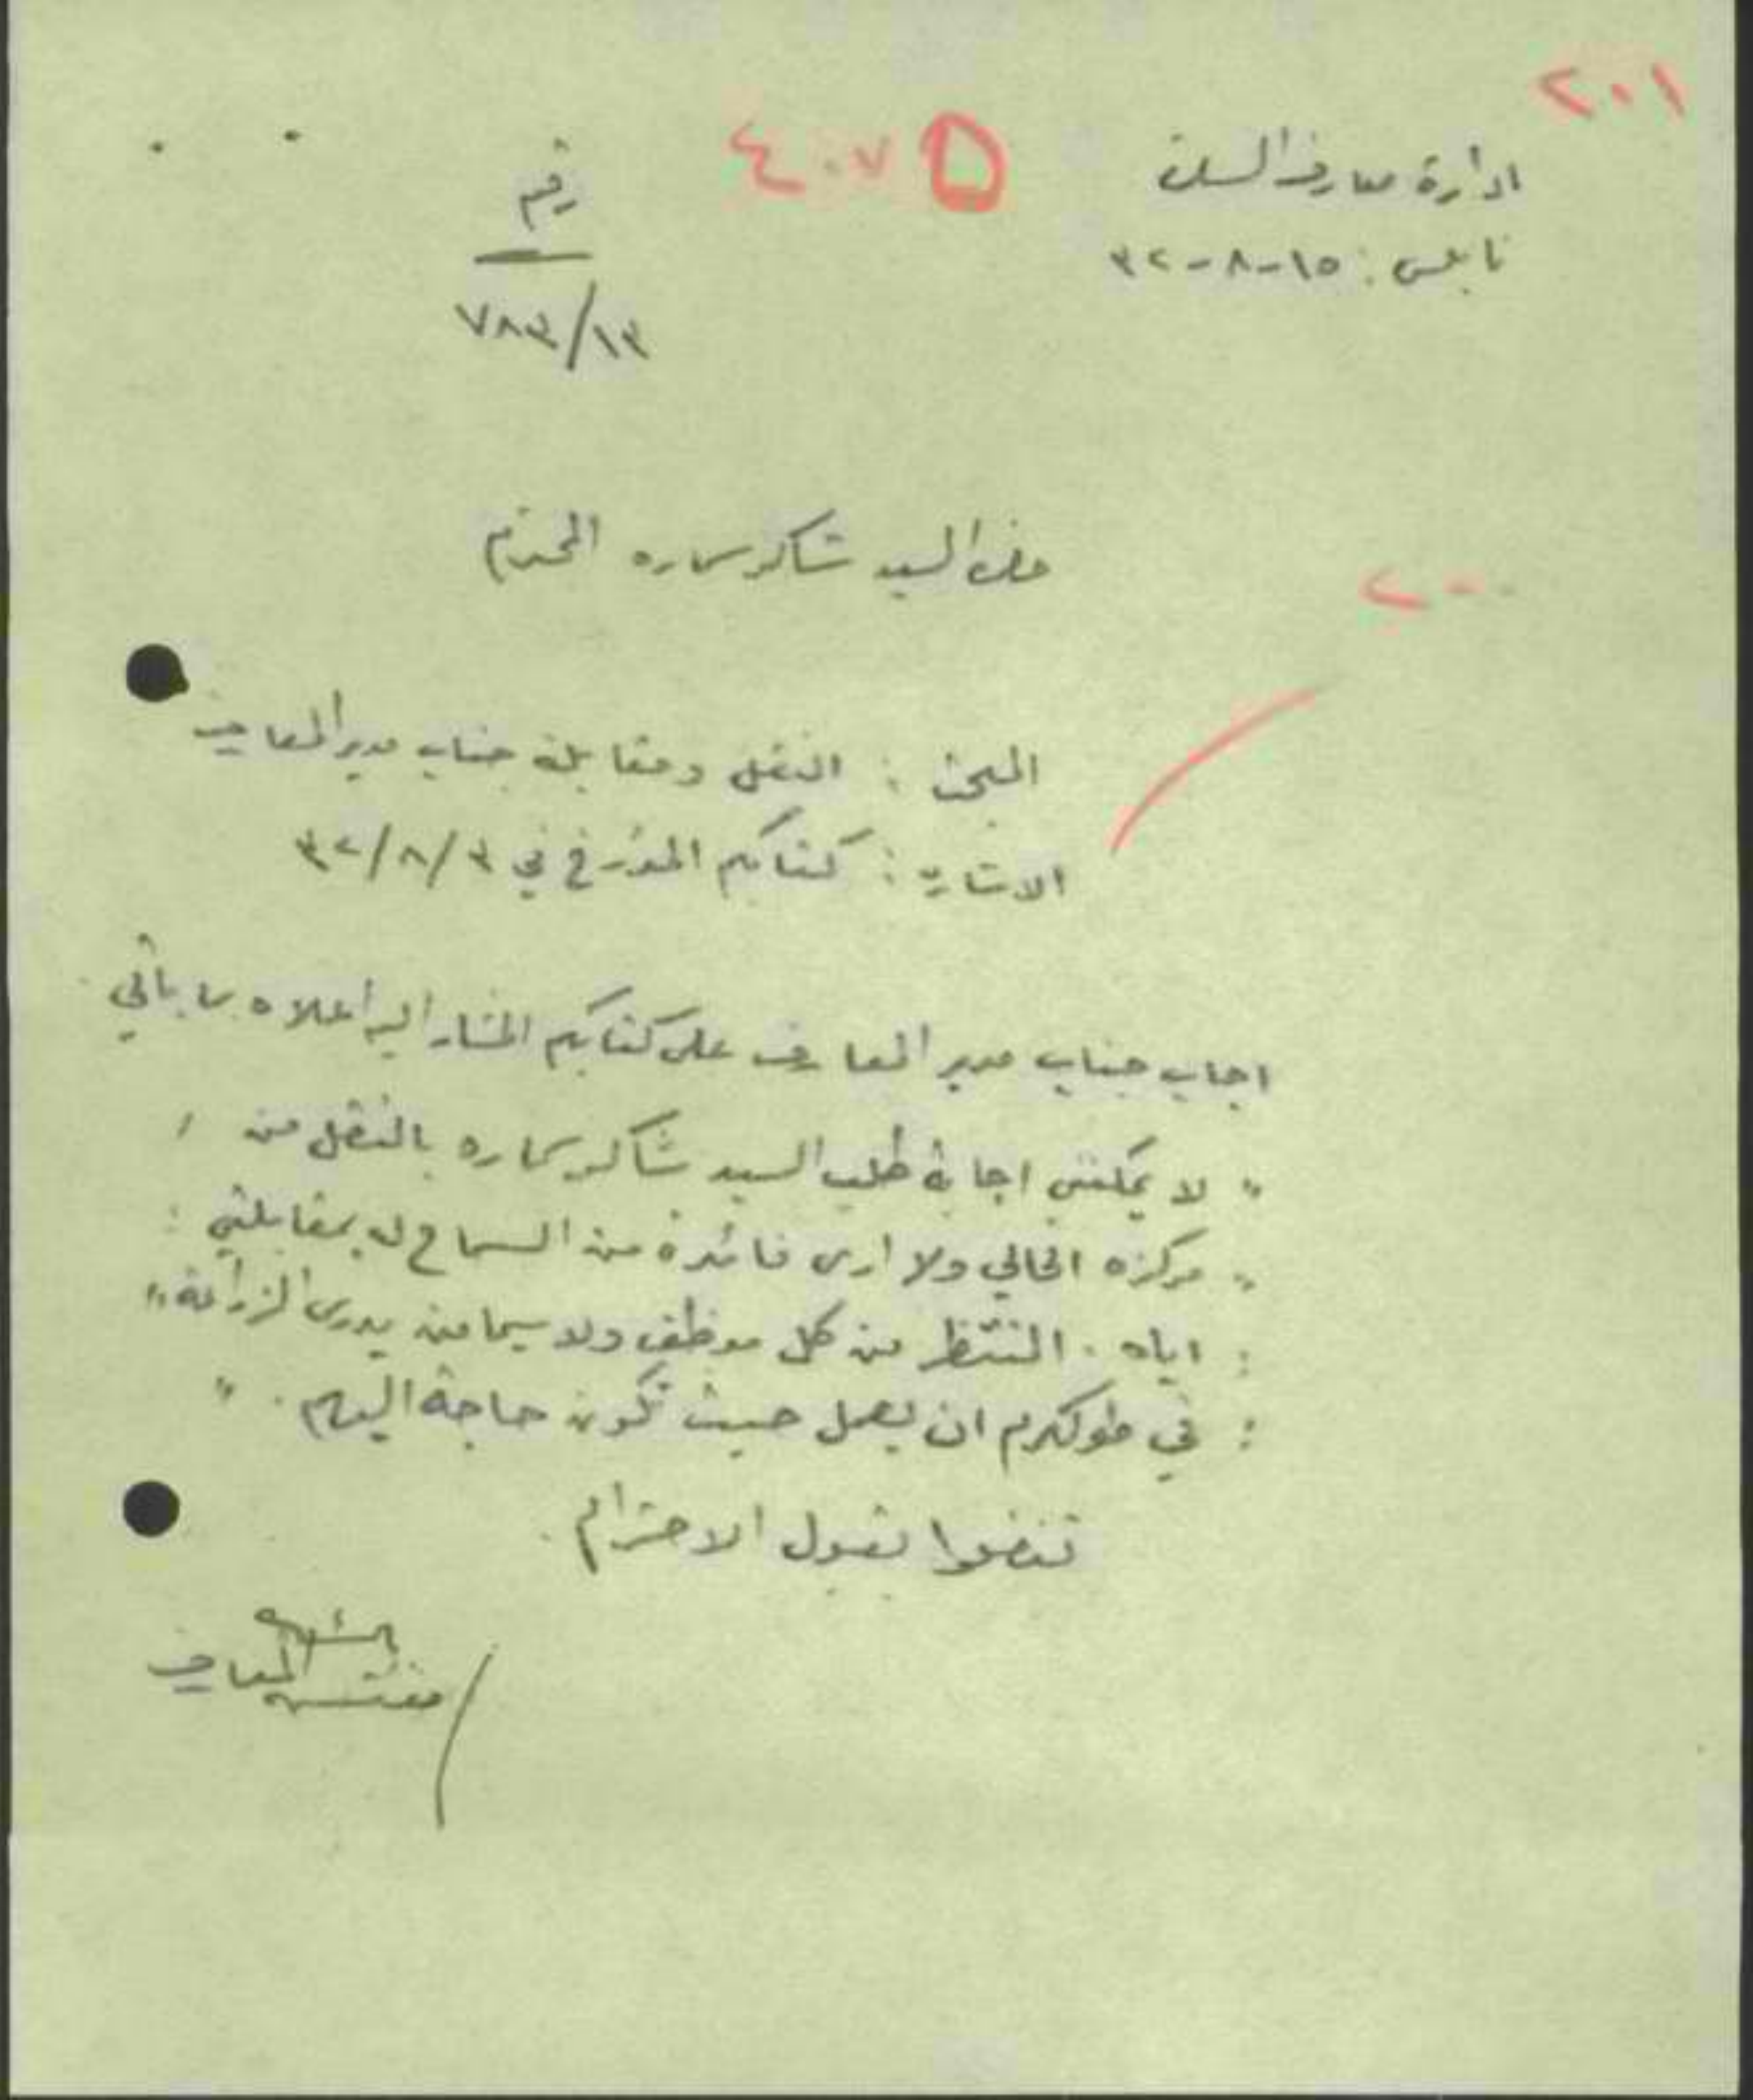 ٢٠١
ادارة معارف السامرة
٤٠٧ ٥
رقم
نابلس: ١٥-٨-٣٢
٧٨٣/١٣
حضرة السيد شاكر سماره المحترم
٢٠٠
المبحث : النقل ومقابلة جناب مدير المعارف
الاشارة : كتابكم المؤرخ في ٣٢/٨/٣
اجاب جناب مدير المعارف على كتابكم المشار اليه اعلاه بما يأتي
" لا يمكنني اجابة طلب السيد شاكر سماره بالنقل من
" مركزه الحالي ولا ارى فائدة من السماح له بمقابلتي
: اياه . المنتظر من كل موظف ولا سيما من يدرس الزراعة "
: في طولكرم ان يعمل حيث تكون حاجة اليهم . "
تفضلوا بقبول الاحترام .
مفتش المعارف